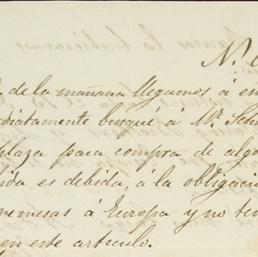 N.
de la mañana lleguemos á en
diatamente busqué á Mr. Sch
plaza para compra de algo
ida es debida, á la obligaci
remesas á Europa y no ten
en este artículo.